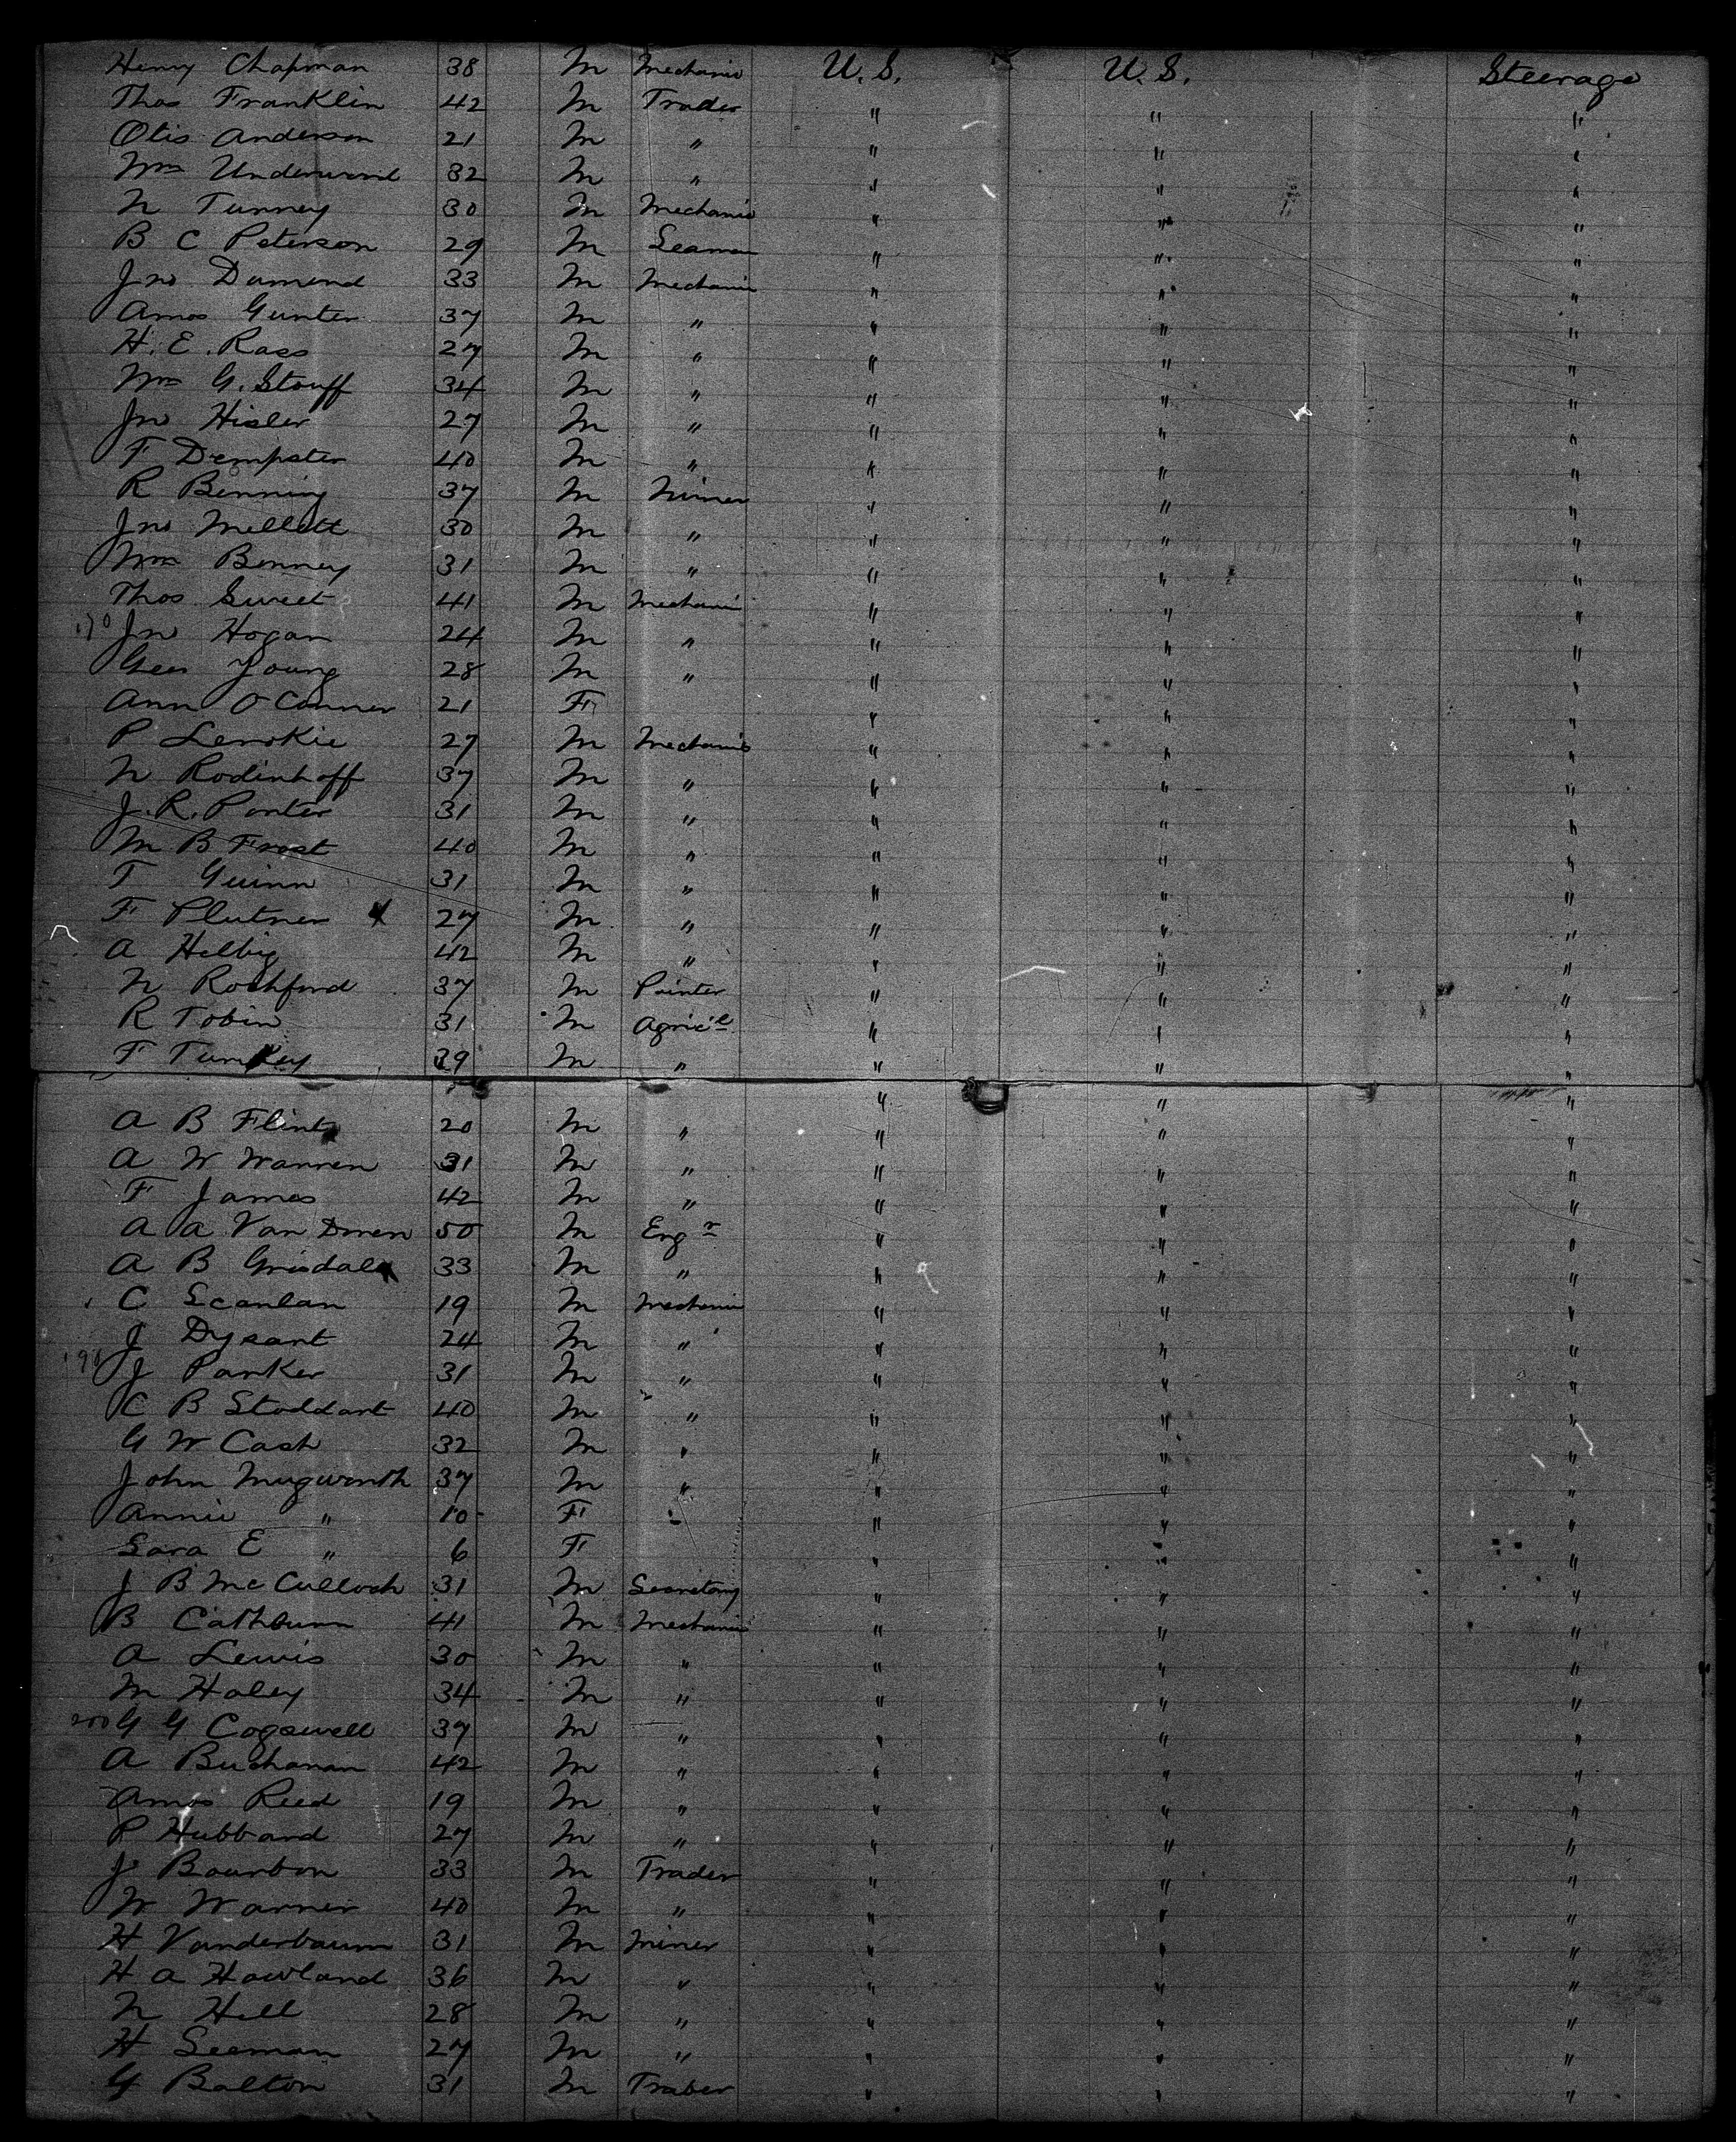 Henry Chapman 38 M Mechanic U. S. U. S. Steerage
Thos Franklin 42 M Trader " " "
Otis Anderson 21 M " " " "
Wm Underwood 32 M " " " "
N Tunney 30 M Mechanic " " "
B C Peterson 29 M Seaman " " "
Jno Dumond 33 M Mechanic " " "
Amos Gunter 37 M " " " "
H. E. Rass 27 M " " " "
Wm G. Stouff 34 M " " " "
Jno Hisler 27 M " " " "
F Dempster 40 M " " " "
R Benning 37 M Miner " " "
Jno Mellett 30 M " " " "
Wm Benney 31 M " " " "
Thos Sweet 41 M Mechanic " " "
170 Jno Hogan 24 M " " " "
Geo Young 28 M " " " "
Ann O Conner 21 F " " "
P Lenokie 27 M Mechanic " " "
N Rodinhoff 37 M " " " "
J. R. Porter 31 M " " " "
M B Frost 40 M " " " "
T Guinn 31 M " " " "
F Plutner 27 M " " " "
A Helbig 42 M " " " "
N Rochford 37 M Painter " " "
R Tobin 31 M Agric'l " " "
F Tumkey 29 M " " " "
" " "
A B Flint 20 M " " " "
A W Warren 31 M " " " "
F James 42 M " " " "
A A Van Dmen 50 M Engr " " "
A B Grisdale 33 M " " " "
C Scanlan 19 M Mechanic " " "
J Dysart 24 M " " " "
190 J Parker 31 M " " " "
C B Stoddart 40 M " " " "
G W Cash 32 M " " " "
John Mugworth 37 M " " " "
Annie " 10 F " " "
Sara E " 6 F " " "
J B McCulloch 31 M Secretary " " "
B Cathbunn 41 M Mechanic " " "
A Lewis 30 M " " " "
M Haley 34 M " " " "
200 G G Cogswell 37 M " " " "
A Buchanan 42 M " " " "
Amos Reed 19 M " " " "
P Hubbard 27 M " " " "
J Bourbon 33 M Trader " " "
W Warner 40 M " " " "
H Vanderbaum 31 M Miner " " "
H A Howland 36 M " " " "
N Hill 28 M " " " "
H Seeman 27 M " " " "
G Balton 31 M Trader " " "